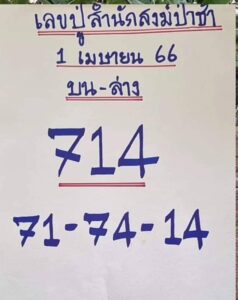 เลขปู่สำนักสงฆ์ป่าช้า
1 เมษายน 66
บน-ล่าง
714
71-74-14